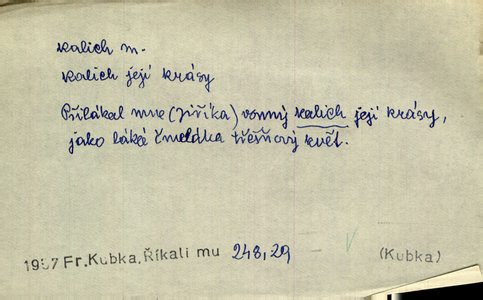 kalich m.
kalich její krásy
Přilákal mne (Jiříka) vonný kalich její krásy,
jako láká čmeláka třešňový květ.
1957 Fr.Kubka, Říkali mu 248,29 (Kubka)